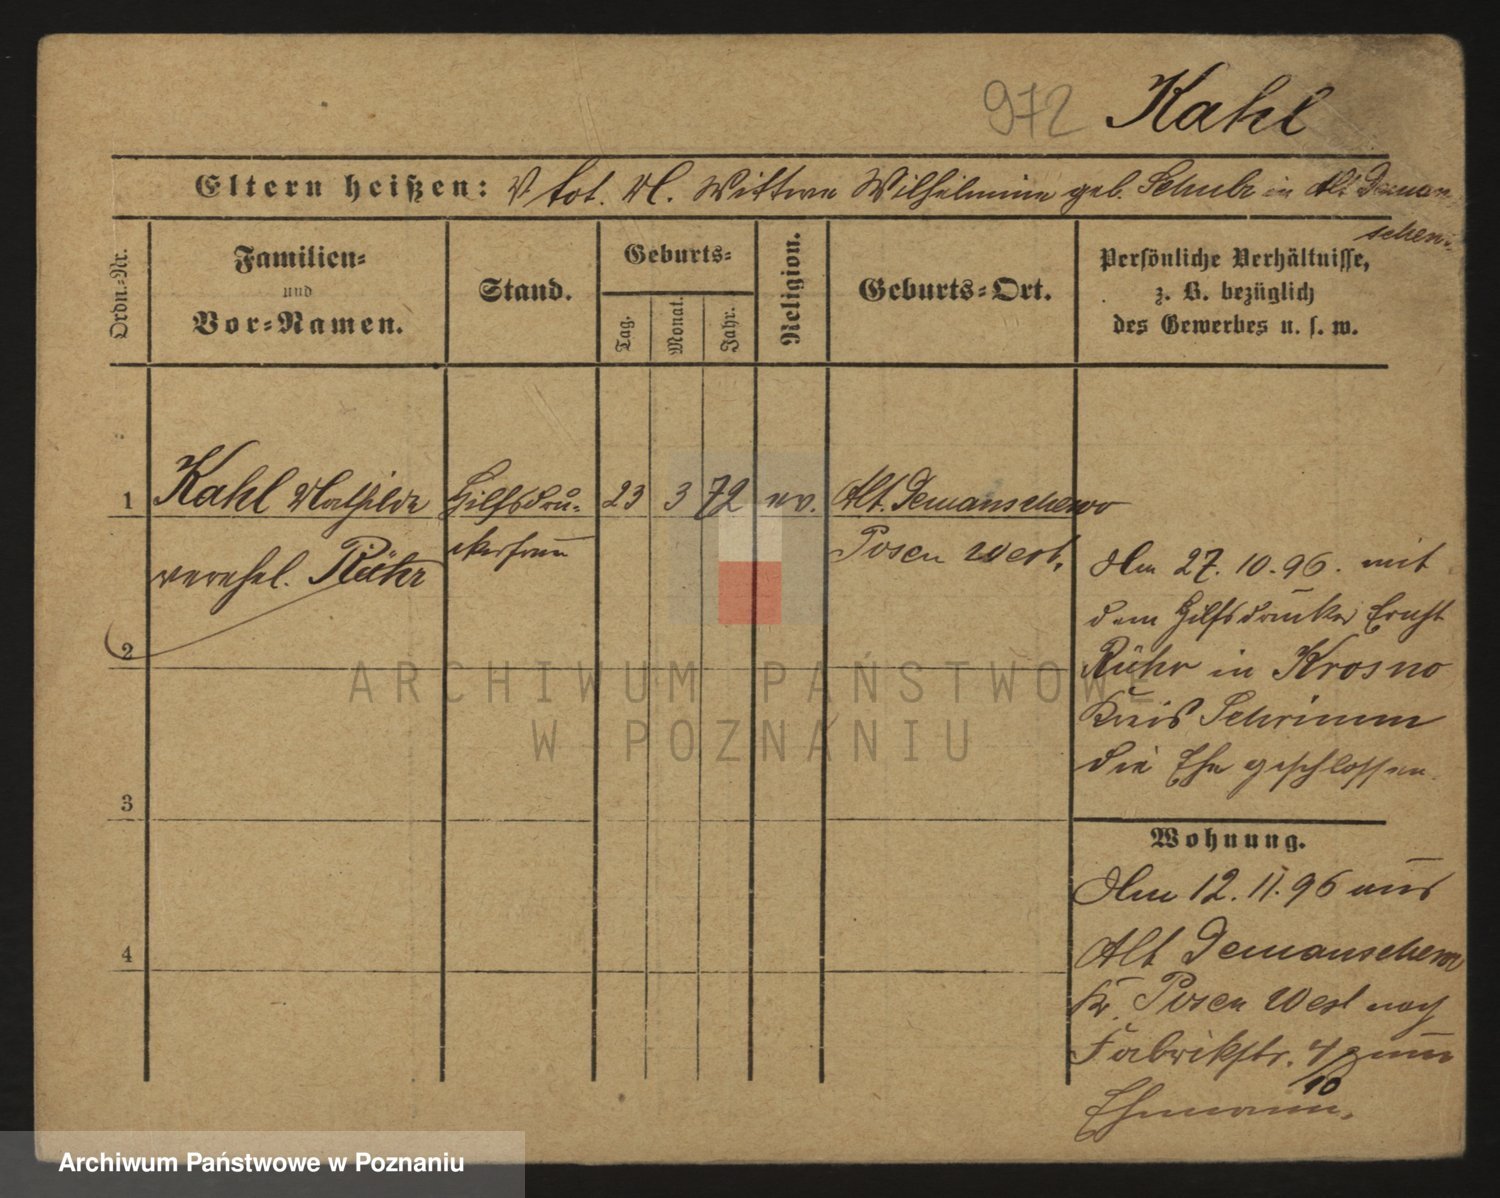 972 Kahl
Eltern heißen: V tot. M. Wittwe Wilhelmine geb. Schulz in Alt Deman
schewo
Ordn.-Nr.
Familien-
und
Vor-Namen.
Stand.
Geburts-
Tag.
Monat.
Jahr.
Religion.
Geburts-Ort.
Persönliche Verhältnisse,
z. B. bezüglich
des Gewerbes u. s. w.
1 Kahl Mathilde Hilfsbru- 23 3 72 ev. Alt. Demanschewo
verehel. Rühr ckerfrau Posen West.
2
3
4
Am 27. 10. 96. mit
dem Hilfsdrucker Ernst
Rühr in Krosno
Kreis Schrimm
die Ehe geschlossen.
Wohnung.
Am 12. 11. 96 aus
Alt Demanschewo
Kr. Posen West nach
Fabrikstr. zum
10
Ehemann.
ARCHIWUM PAŃSTWOWE
W POZNANIU
Archiwum Państwowe w Poznaniu